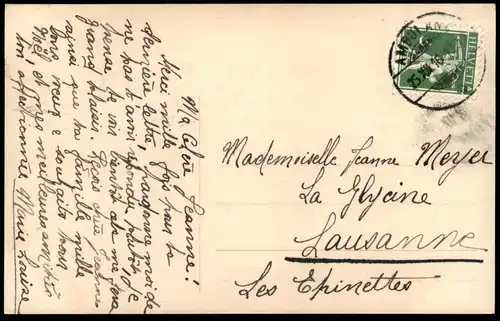 Ma Chère Jeanne!
Merci mille fois pour ta
dernière lettre, pardonne moi de
ne pas t'avoir répondu plutôt. Je
pense te voir bientôt cela me fera
grand plaisir. Reçois chère Jeanne
ainsi que ta famille mille
bons vœux & souhaits pour
Noël et mes meilleures amitiés
ton affectionnée Marie Louise
HELVETIA
Mademoiselle Jeanne Meyer
La Glycine
Lausanne
Les Epinettes